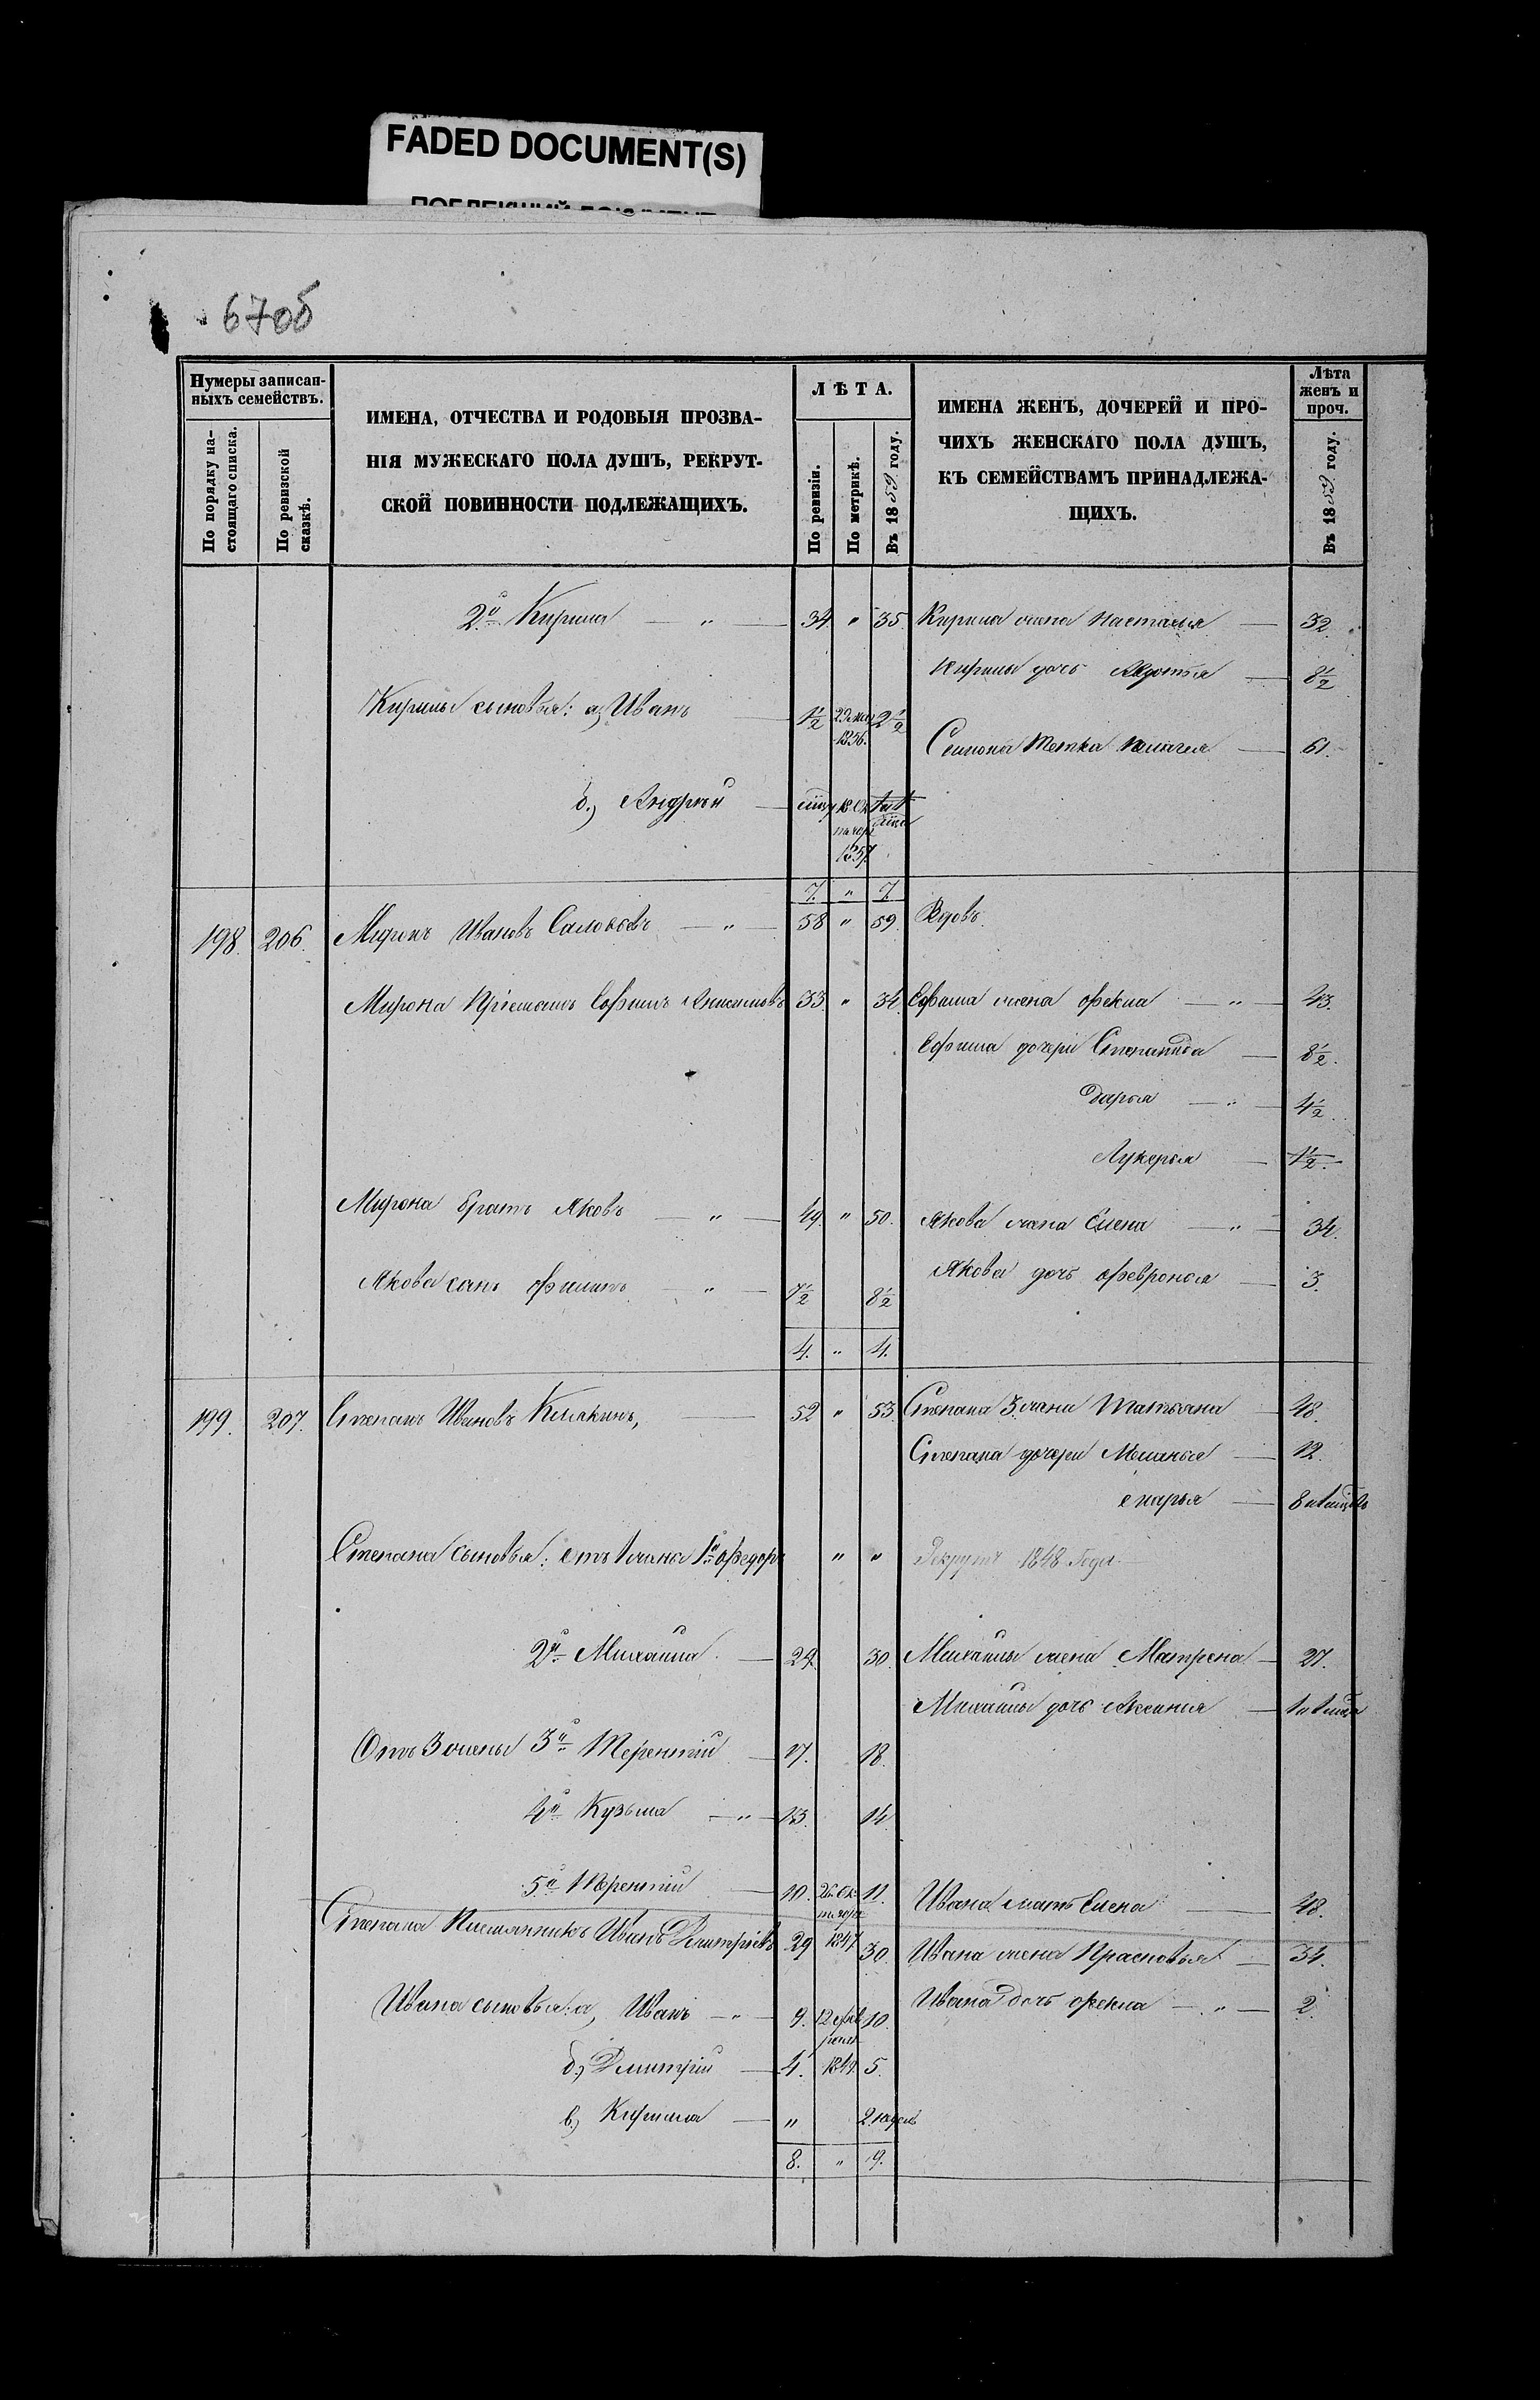 FADED DOCUMENT(S)
670б
Нумеры записан-
ныхъ семействъ.
По порядку на-
стоящаго списка.
По ревизской
сказкѣ.
ИМЕНА, ОТЧЕСТВА И РОДОВЫЯ ПРОЗВА-
НІЯ МУЖЕСКАГО ПОЛА ДУШЪ, РЕКРУТ-
СКОЙ ПОВИННОСТИ ПОДЛЕЖАЩИХЪ.
ЛѢТА.
По ревизіи.
По метрикѣ.
Въ 1859 году.
ИМЕНА ЖЕНЪ, ДОЧЕРЕЙ И ПРО-
ЧИХЪ ЖЕНСКАГО ПОЛА ДУШЪ,
КЪ СЕМЕЙСТВАМЪ ПРИНАДЛЕЖА-
ЩИХЪ.
Лѣта
женъ и
проч.
Въ 1859 году.
2й Кирила — " — 34. " 35. Кирила жена Настасья — 32.
Кирилы дочь Авдотья — 8½
Кирилы сыновья: а, Иванъ — 1½ 1856. 2½
Семиона тетка — 61.
б.) Андрей — 18 Ок
тября
1857
7. " 7.
198. 206. Миронъ Ивановъ Саловьевъ — " — 58 " 59. Вдовъ
Мирона Пріемышъ Ефимъ Анисимовъ 33. " 34. Ефима жена Фекла — " — 43.
Ефима дочери Степанида — 8½.
Дарья — " — 4½.
Лукерья — 1½.
Мирона братъ Яковъ — " — 49. " 50. Якова жена Елена — " — 34.
Якова сынъ Филипъ — " — 7½ 8½ Якова дочь Февронья — 3.
4. " 4.
199. 207. Степанъ Ивановъ — 52 " 53. Степана 3 жена Татьяна 48.
Степана дочери Меланья — 12.
Марья — 8
Степана сыновья: отъ 1 жены 1й Федоръ " " Рекрутъ 1848 Года
2й Михаила — 29. 30. Михаилы жена Матрена — 27.
Михаилы дочь Аксинья —
Отъ 3 жены 3й Терентій — 17. 18.
4й Кузьма — " — 13. 14.
5й Терентій — 10. 26 Ок 11.
тября
1847 Ивана мать Елена — 48.
Степана Племянникъ Иванъ Дмитріевъ 29 30. Ивана жена Прасковья — 34.
Ивана сыновья: а, Иванъ — " — 9. 12 Фев 10. Ивана дочь Фекла — " — 2.
раля
1849
б.) Дмитрій — 4. 5.
в.) Кирила — " 2 недель
8. " 9.